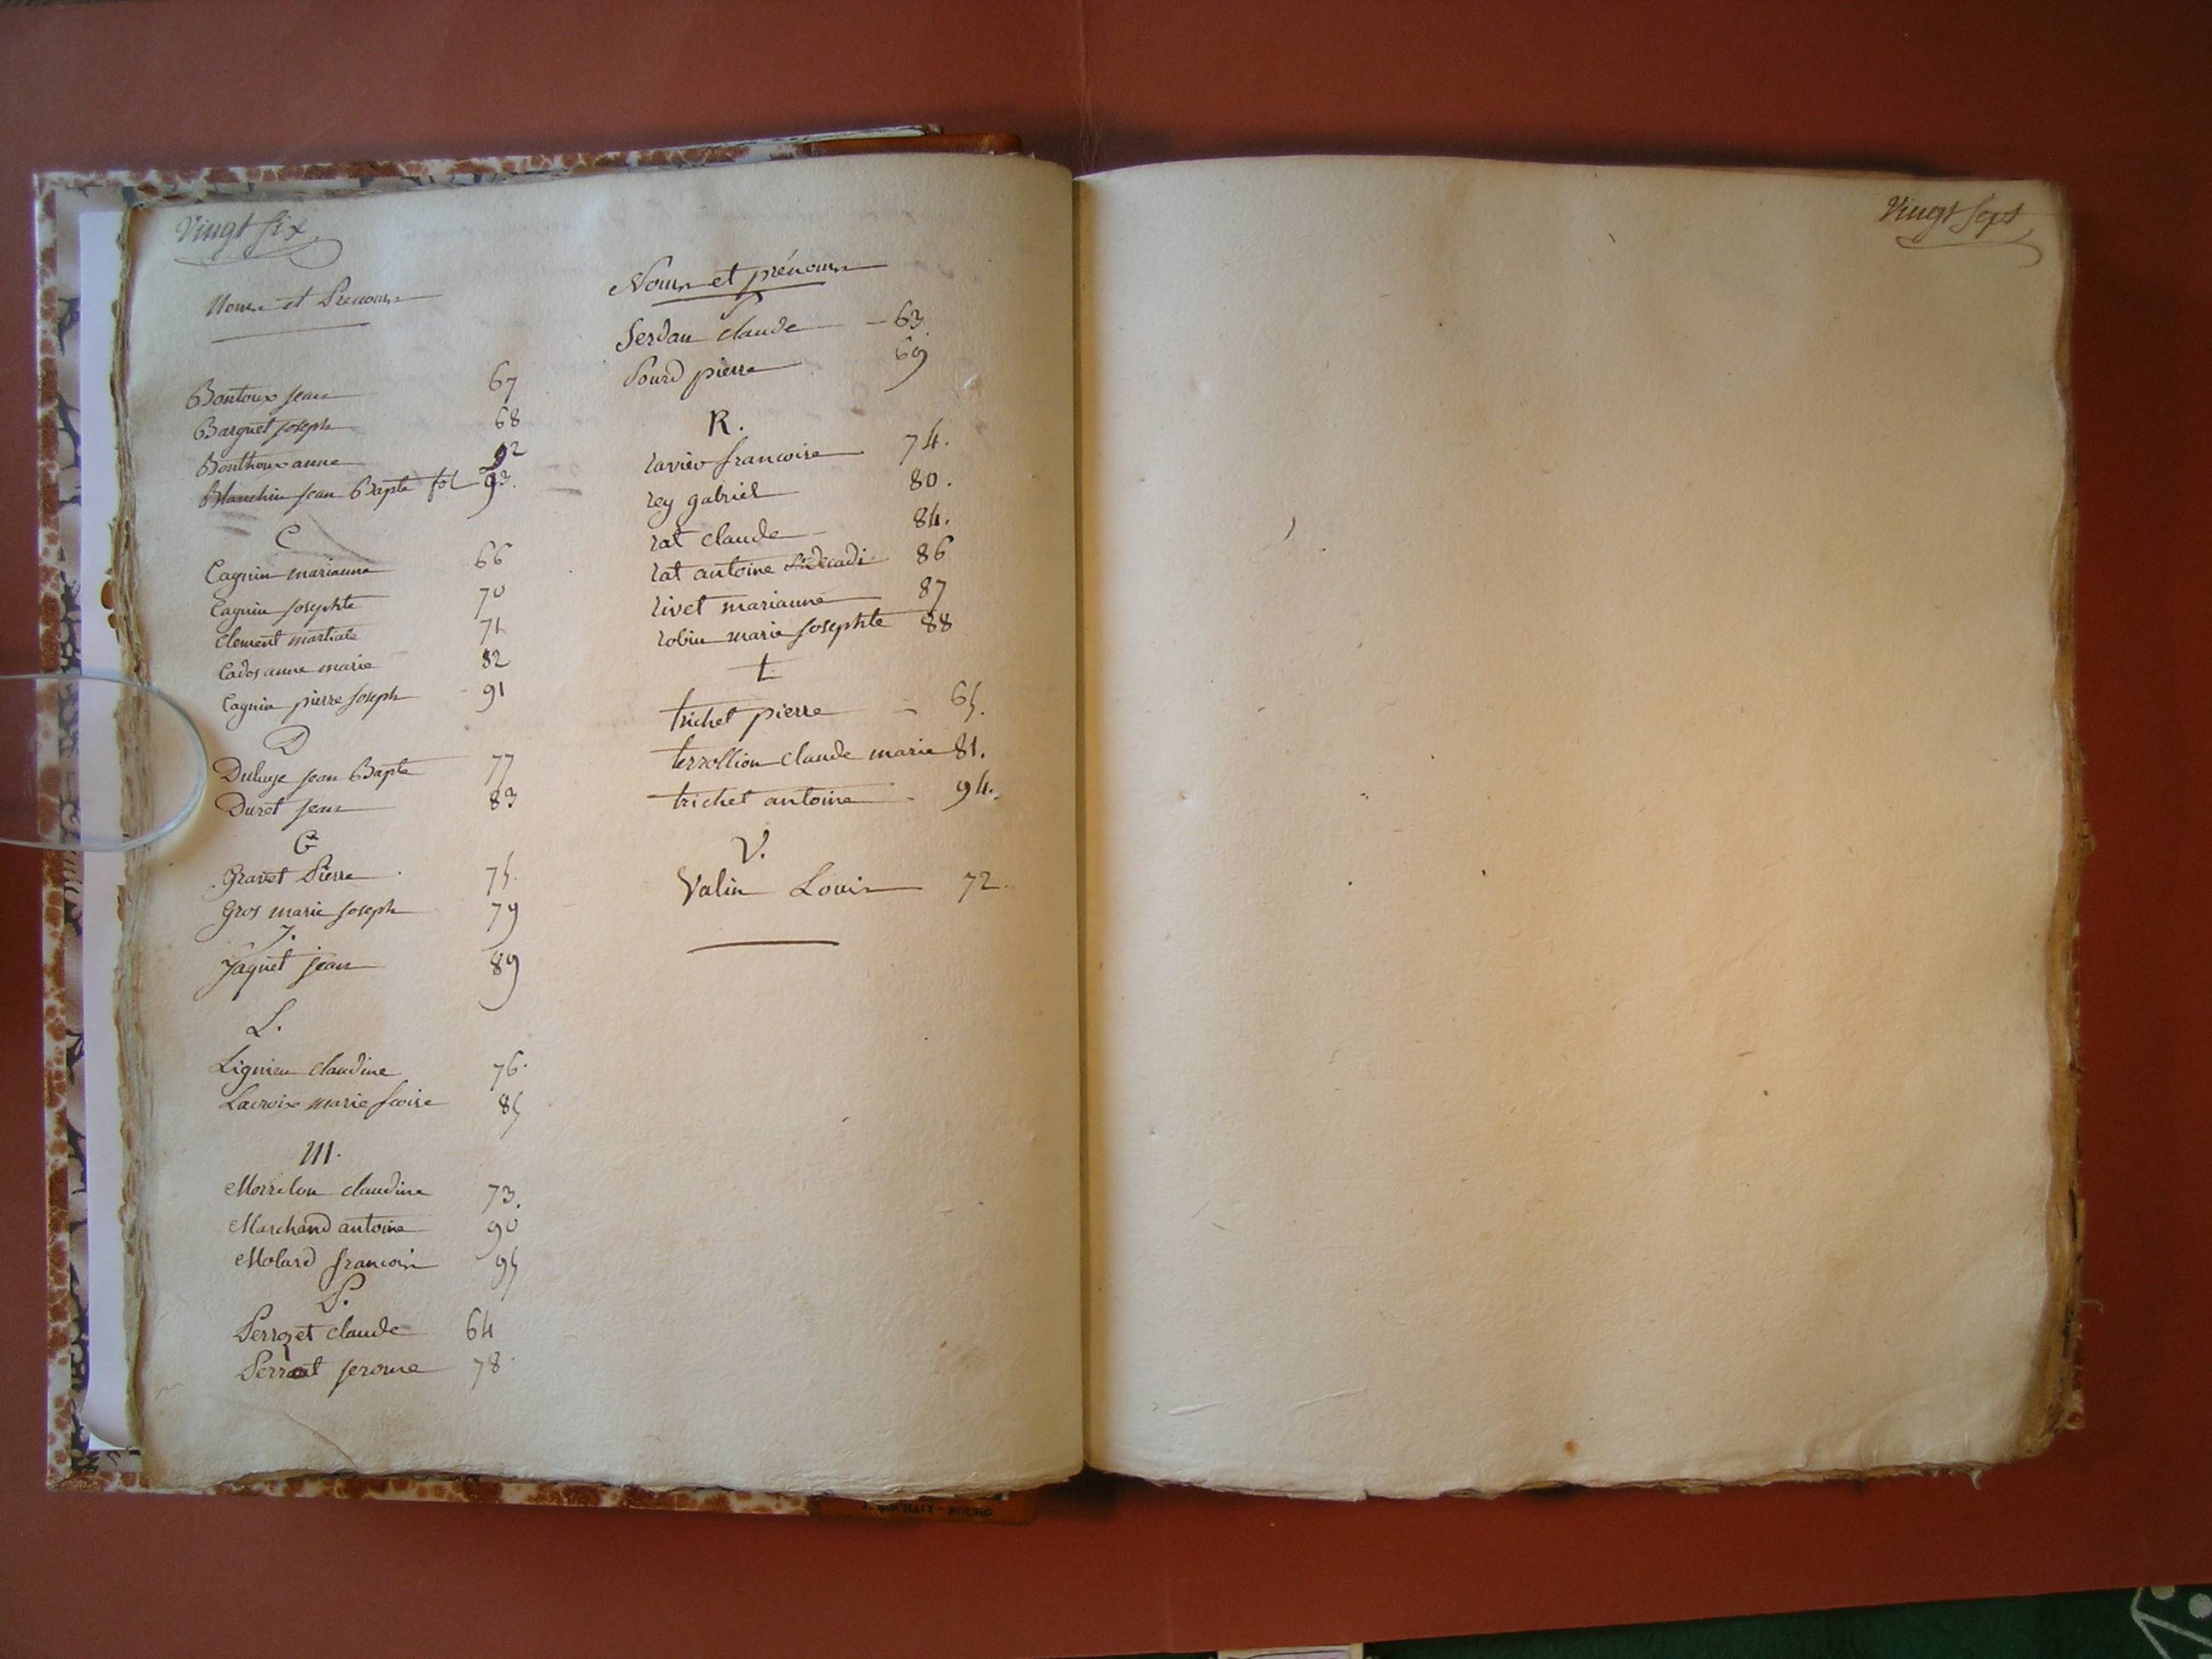 Vingt six
Noms et Prenoms
Bontoux jean 67
Barquet joseph 68
Bonthoux anne 92
Blanchin jean Bapte fol 93.
C
Cagnin marianne 66
Cagnin josephte 70
Clement martiale 71
Cados anne marie 82
Cagnin pierre joseph 91
D
Duhuge jean Bapte 77
Duret jean 83
G
Gravet Pierre 75.
Gros marie joseph 79
J.
Jaquet jean 89
L.
Lignieu claudine 76.
Lacroix marie fcoise 85
M.
Morrelon claudine 73.
Marchand antoine 90
Molard francois 95
P.
Perret claude 64
Perrat jerome 78
Noms et prénoms
claude - 63.
pierre 69
R.
ravier francoise 74.
rey gabriel 80.
rat claude 84.
rat antoine 86
rivet marianne 87
robin marie josephte 88
t.
trichet pierre - 65.
terrollion claude marie 81.
trichet antoine - 94.
V.
Valin Louis 72.
Vingt sept
BOURG